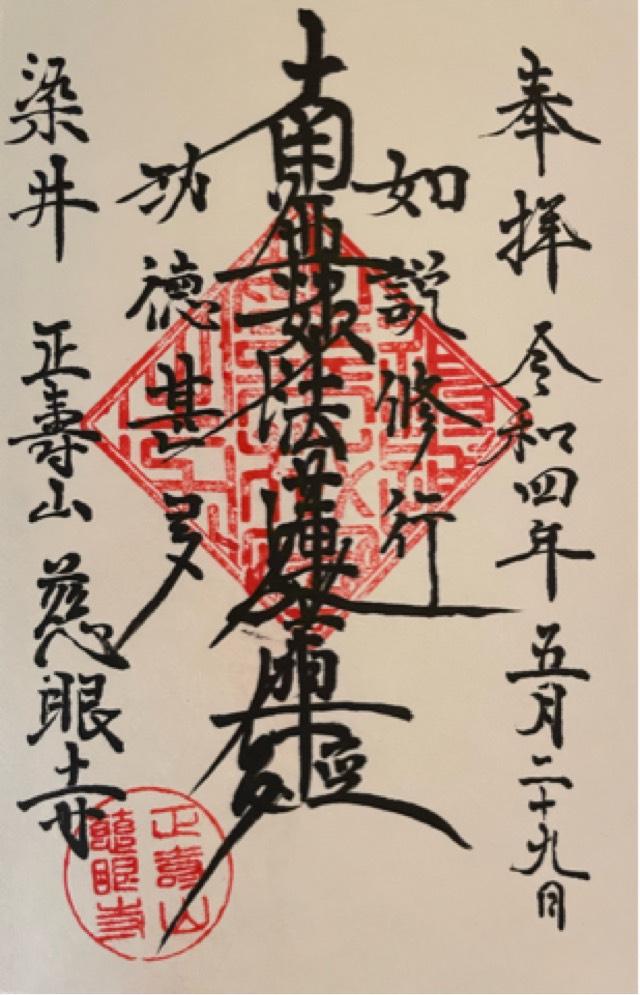 奉拝 令和四年 五月二十九日
如説修行
南無妙法蓮華経
功徳甚多
染井 正壽山 慈眼寺
正壽山
慈眼寺